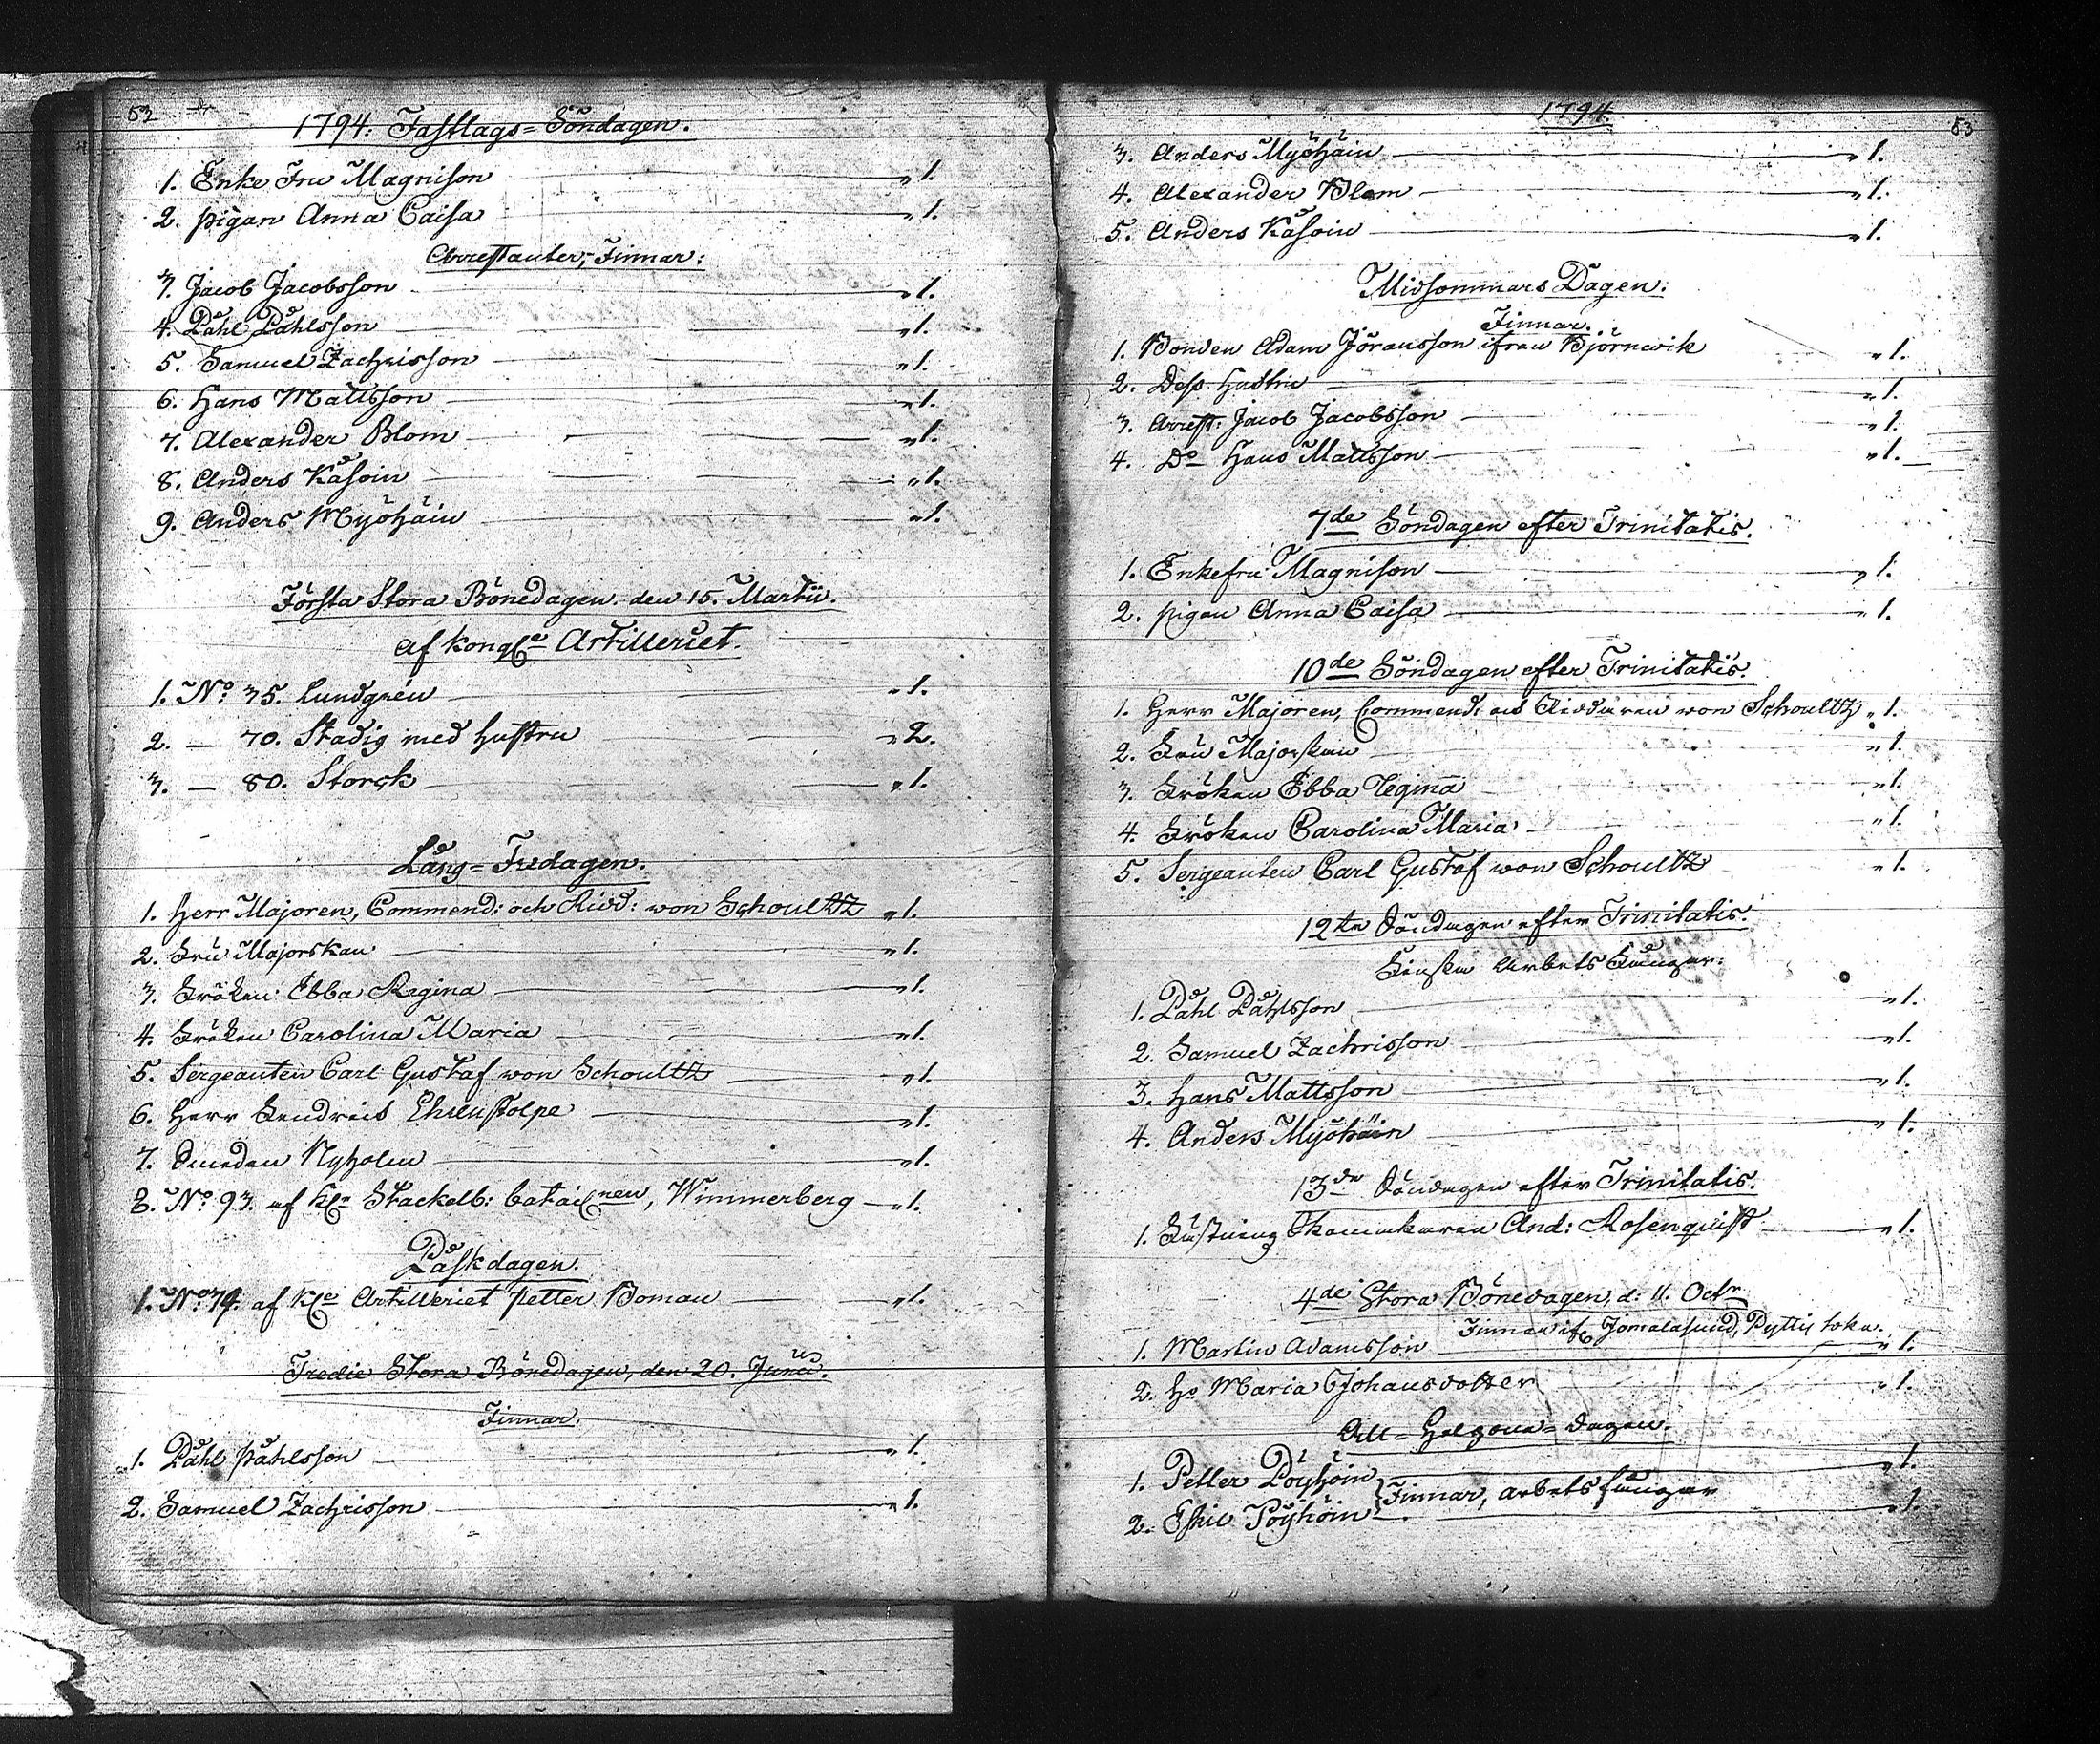 52
1794. Fastlags=Söndagen.
1. Enke Fru Magnison „1.
2. pigan Anna Caisa „1.
Arrestanter, Finnar:
3. Jacob Jacobsson „1.
4. Påhl Påhlsson „1.
5. Samuel Zachrisson „1.
6. Hans Mattsson „1.
7. Alexander Blom „1.
8. Anders Kåsoin „1.
9. Anders Myöhäin „1.
Första Stora Bönedagen den 15. Martii.
af Kongl. Artilleriet.
1. No 35. Lundgrén „1.
2. — 70. Stadig med hustru „2.
3. — 80. Storck „1.
Lång=Fredagen.
1. Herr Majoren, Commend: och Ridd: von Schoultz „1.
2. Fru Majorskan „1.
3. Fröken Ebba Regina „1.
4. Fröken Carolina Maria „1.
5. Sergeanten Carl Gustaf von Schoultz „1.
6. Herr Fendrick Ehrenstolpe „1.
7. Nyholm „1.
8. No 93. af Kl. Stackelb: batail.nen, Wimmerberg „1.
Påskdagen.
1. No 74. af Kl. Artilleriet Petter Boman „1.
Tredie Stora Bönedagen, den 20. Junii.
Finnar.
1. Påhl Påhlsson „1.
2. Samuel Zachrisson „1.
1794.
53
3. Anders Myöhäin „1.
4. Alexander Blom „1.
5. Anders Kåsoin „1.
Midsommars Dagen.
Finnar.
1. Bonden Adam Jöransson ifrån Björnwik „1.
2. Dess hustru „1.
3. Arrest: Jacob Jacobsson „1.
4. Do Hans Mattsson „1.
7de Söndagen efter Trinitatis.
1. Enkefru Magnison „1.
2. pigan Anna Caisa „1.
10de Söndagen efter Trinitatis.
1. Herr Majoren, Commend: och Riddaren von Schoultz „1.
2. Fru Majorskan „1.
3. Fröken Ebba Regina „1.
4. Fröken Carolina Maria „1.
5. Sergeanten Carl Gustaf von Schoultz „1.
12te Söndagen efter Trinitatis.
Finska Arbets Fångar.
1. Påhl Påhlsson „1.
2. Samuel Zachrisson „1.
3. Hans Mattsson „1.
4. Anders Myöhäin „1.
13de Söndagen efter Trinitatis.
1. Fästning Skomakaren And: Rosenquist „1.
4de Stora Bönedagen, d: 11. Octr
Finnar if. Jomalasund, Pyttis sokn.
1. Martin Adamsson „1.
2. H. Maria Johansdotter „1.
All=Helgona=Dagen.
1. Petter Pöyhöin „1.
Finnar, arbets fångar
2. Eskil Pöyhöin „1.